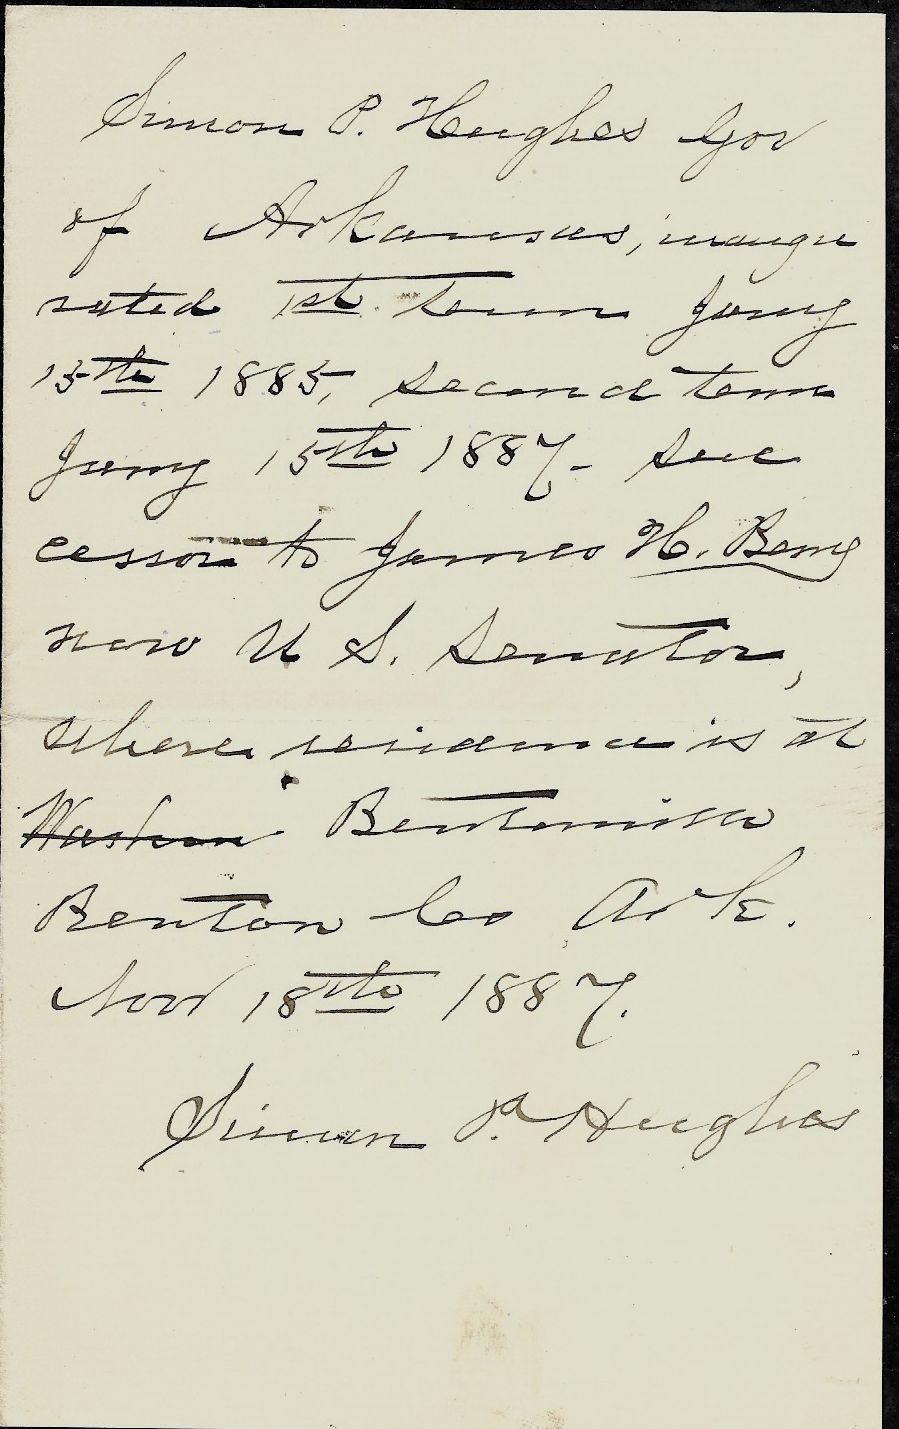 Simon P. Hughes Gov
of Arkansas, inaugu
rated 1st term Jany
15th 1885, second term
Jany 15th 1887- suc
cessor to James H. Berry
now U S. Senator,
whose residence is at
Washin Bentonville
Benton Co Ark.
Nov 18th 1887.
Simon P. Hughes